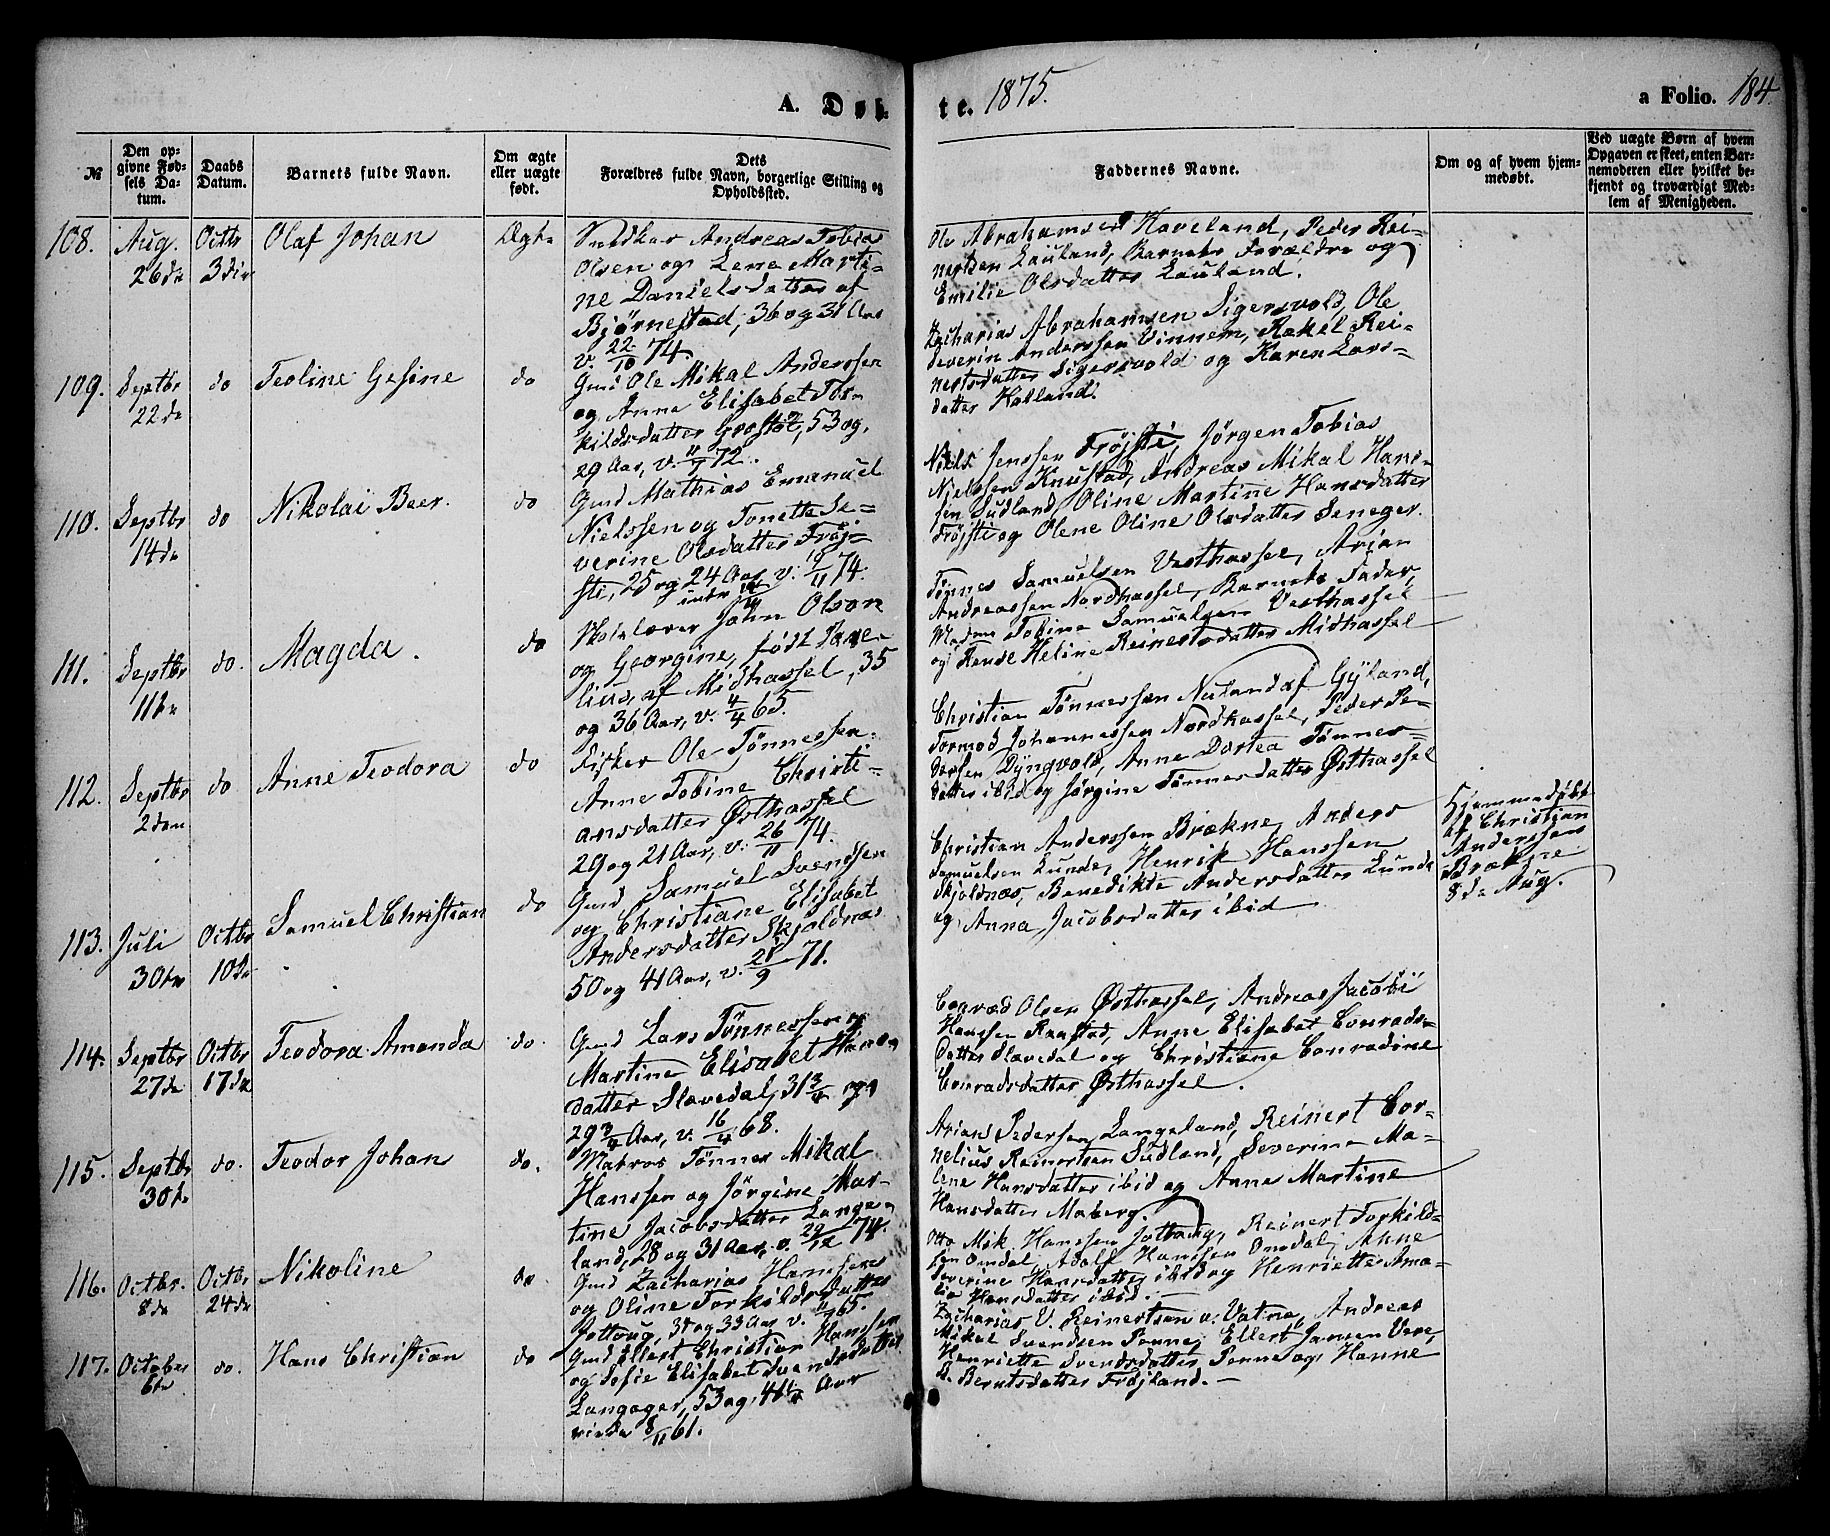 A. Døb-
te. 1875.
a Folio. 184.
№
Den op-
givne Fød-
sels Da-
tum.
Daabs
Datum.
Barnets fulde Navn.
Om ægte
eller uægte
født.
Dets
Forældres fulde Navn, borgerlige Stilling og
Opholdssted.
Faddernes Navne.
Om og af hvem hjem-
medøbt.
Ved uægte Børn af hvem
Opgaven er skeet, enten Bar-
nemoderen eller hvilket be-
kjendt og troværdigt Med-
lem af Menigheden.
108.
Aug.
26de
Octbr
3die
Olaf Johan
Ægte
Snedker Andreas Tobias
Olsen og Lene Marti-
ne Danielsdatter af
Bjørnestad, 36 og 31 Aar
v. 22/10 74.
Ole Abrahamsen Haveland, Peder Rei-
nertsen Lauland, Barnets Forældre og
Emilie Olsdatter Lauland.
109.
Septbr
22de
do
Teoline Gesine
do
Gmd Ole Mikal Anderssen
og Anne Elisabet Tor-
kildsdatter Grostøl, 53 og
29 Aar, v. 11/7 72.
Zacharias Abrahamsen Sigersvold, Ole
Severin Anderssen Vinnem, Rakel Rei-
nertsdatter Sigersvold og Karen Lars-
datter Halland.
110.
Septbr
14de
do
Nikolai Beer.
do
Gmd Mathias Emanuel
Nielssen og Tonette Se-
verine Olsdatter Frøj-
sti, 25 og 24 Aar v. 11 74.
Niels Jenssen Frøjsti, Jørgen Tobias
Nielssen Knustad, Andreas Mikal Hans-
sen Sudland, Oline Martine Hansdatter
Frøjsti og Olene Oline Olsdatter Seneger.
111.
Septbr
11te
do.
Magda.
do
Skolelærer John Olson
og Georgine, født Dane-
lius, af Midhassel, 35
og 36 Aar, v. 4/4 65.
Tønnes Samuelsen Vesthassel, Arian
Andreassen Nordhassel, Barnets Fader,
Madm Tobine Samuelsen Vesthassel
og Heline Reinertsdatter Midhassel
112.
Septbr
2den
do
Anne Teodora
do
Fisker Ole Tønnessen
Anne Tobine Christi-
ansdatter Østhassel
29 og 21 Aar, v. 26/11 74.
Christian Tønnessen Nuland af Gyland,
Tormod Johannessen Nordhassel, Peder Pe-
dersen Dyngvold, Anne Dortea Tønnes-
datter ibid og Jørgine Tønnesdatter Østhassel
113.
Juli
30te
Octbr
10de
Samuel Christian
do
Gmd Samuel Svendsen
og Christiane Elisabet
Andersdatter Skjoldnæs
50 og 41 Aar, v. 21/9 71.
Christian Anderssen Brækne, Anders
Samuelsen Lunde, Henrik Hanssen
Skjoldnæs, Benedikte Andersdatter Lunde
og Anna Jacobsdatter ibid
Hjemmedøbt
af Christian
Anderssen
Brækne
8de Aug.
114.
Septbr
27de
Octbr
17de
Teodora Amanda
do.
Gmd Lars Tønnessen og
Martine Elisabet Hans-
datter Slævedal, 31 3/4 og
29 3/4 Aar, v. 16/4 68.
Conrad Olsen Østhassel, Andreas Jacobi
Hanssen Raustad, Anne Elisabet Conrads-
datter Slævedal og Christiane Conradine
Conradsdatter Østhassel.
115.
Septbr
30te
do.
Teodor Johan
do.
Matros Tønnes Mikal
Hanssen og Jørgine Mar-
tine Jacobsdatter Lange-
land, 28 og 31 Aar, v. 29/12 74.
Arian Pedersen Langeland, Reinert Cor-
nelius Reinertsen Sudland, Severine Ma-
lene Hansdatter ibid og Anne Martine
Hansdatter Maberg.
116.
Octbr.
8de
Octbr
24de
Nikoline
do
Gmd Zacharias Hanssen
og Oline Torkildsdatter
Jottoug, 34 og 33 Aar v. 11/7 65.
Otto Mik. Hanssen Jottoug, Reinert Torkild-
sen Omdal, Adolf Hanssen Omdal, Anne
Severine Hansdatter ibid og Henriette Ama-
lia Hansdatter ibid.
117.
October
6te
do.
Hans Christian
do
Gmd Ellert Christian Hanssen
og Sofie Elisabet Svendsdatter
Langager, 53 og 41 1/2 Aar
viede 8/11 61.
Zacharias V. Reinertsen v. Vatne, Andreas
Mikel Svendsen Penne, Ellert Jansen Vere,
Henriette Svendsdatter Penne og Hanne
B. Berntsdatter Frøjland.